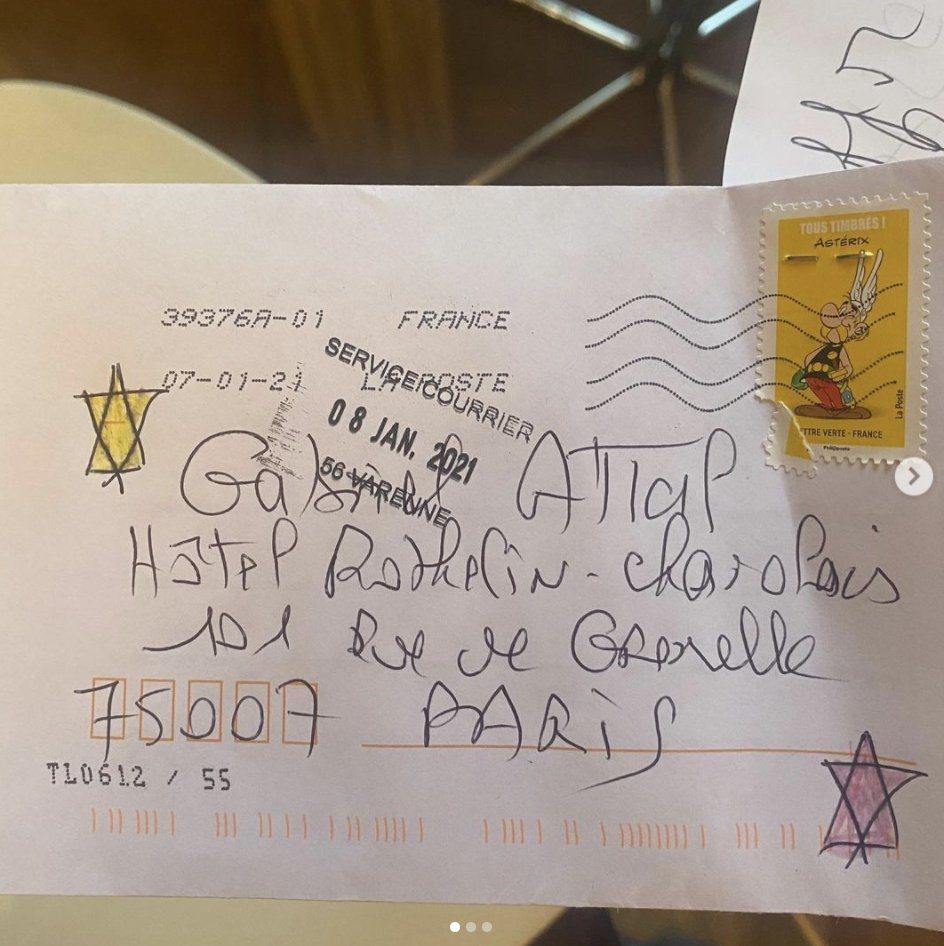 TOUS TIMBRÉS !
ASTÉRIX
La Poste
LETTRE VERTE - FRANCE
Philaposte
39376A-01 FRANCE
07-01-21 LA POSTE
SERVICE COURRIER
08 JAN. 2021
56 VARENNE
Gabriel ATTal
Hôtel Rothelin-charolais
101 Rue de Grenelle
75007 PARis
TL0612 / 55